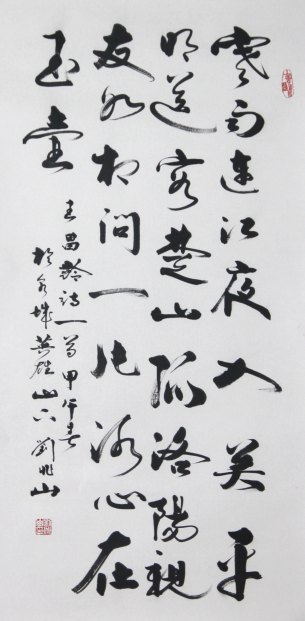 寒雨連江夜入吴平
明送客楚山孤洛陽親
友如相問一片冰心在
玉壺
王昌齡詩一首甲午春
於泉城英雄山下劉兆山